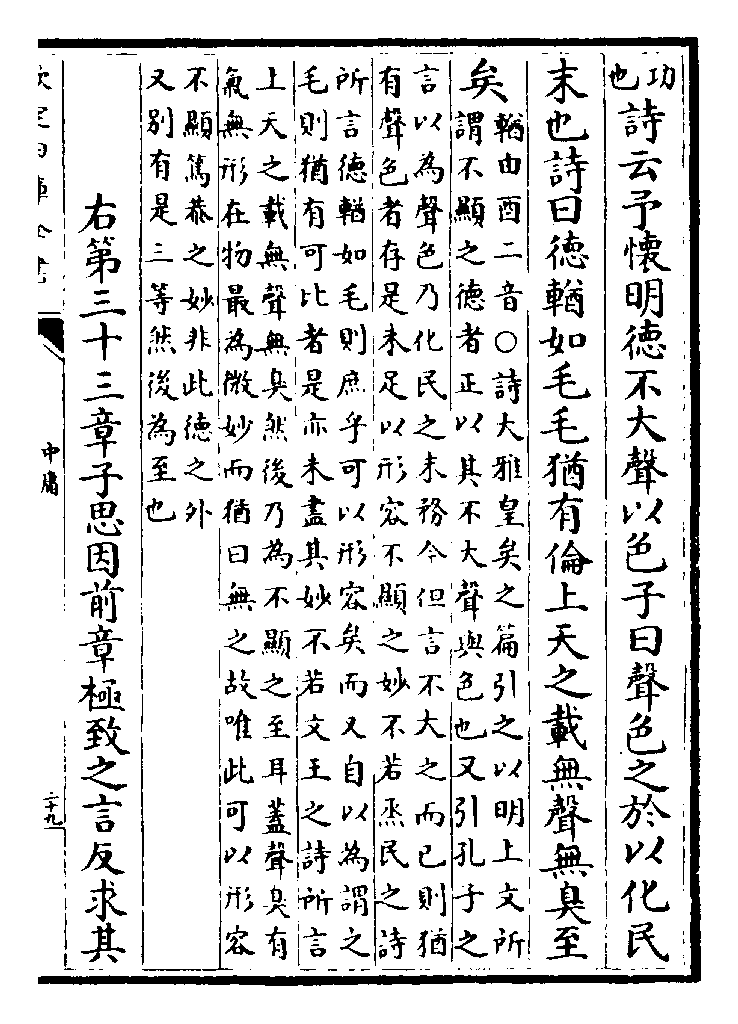 功
也
詩云予懷明德不大聲以色子曰聲色之於以化民
末也詩曰德輶如毛毛猶有倫上天之載無聲無臭至
矣
輶由酉二音○詩大雅皇矣之篇引之以明上文所
謂不顯之德者正以其不大聲與色也又引孔子之
言以為聲色乃化民之末務今但言不大之而已則猶
有聲色者存是未足以形容不顯之妙不若烝民之詩
所言德輶如毛則庶乎可以形容矣而又自以為謂之
毛則猶有可比者是亦未盡其妙不若文王之詩所言
上天之載無聲無臭然後乃為不顯之至耳蓋聲臭有
氣無形在物最為微妙而猶曰無之故唯此可以形容
不顯篤恭之妙非此德之外
又別有是三等然後為至也
右第三十三章子思因前章極致之言反求其
欽定四庫全書
中庸
二十九